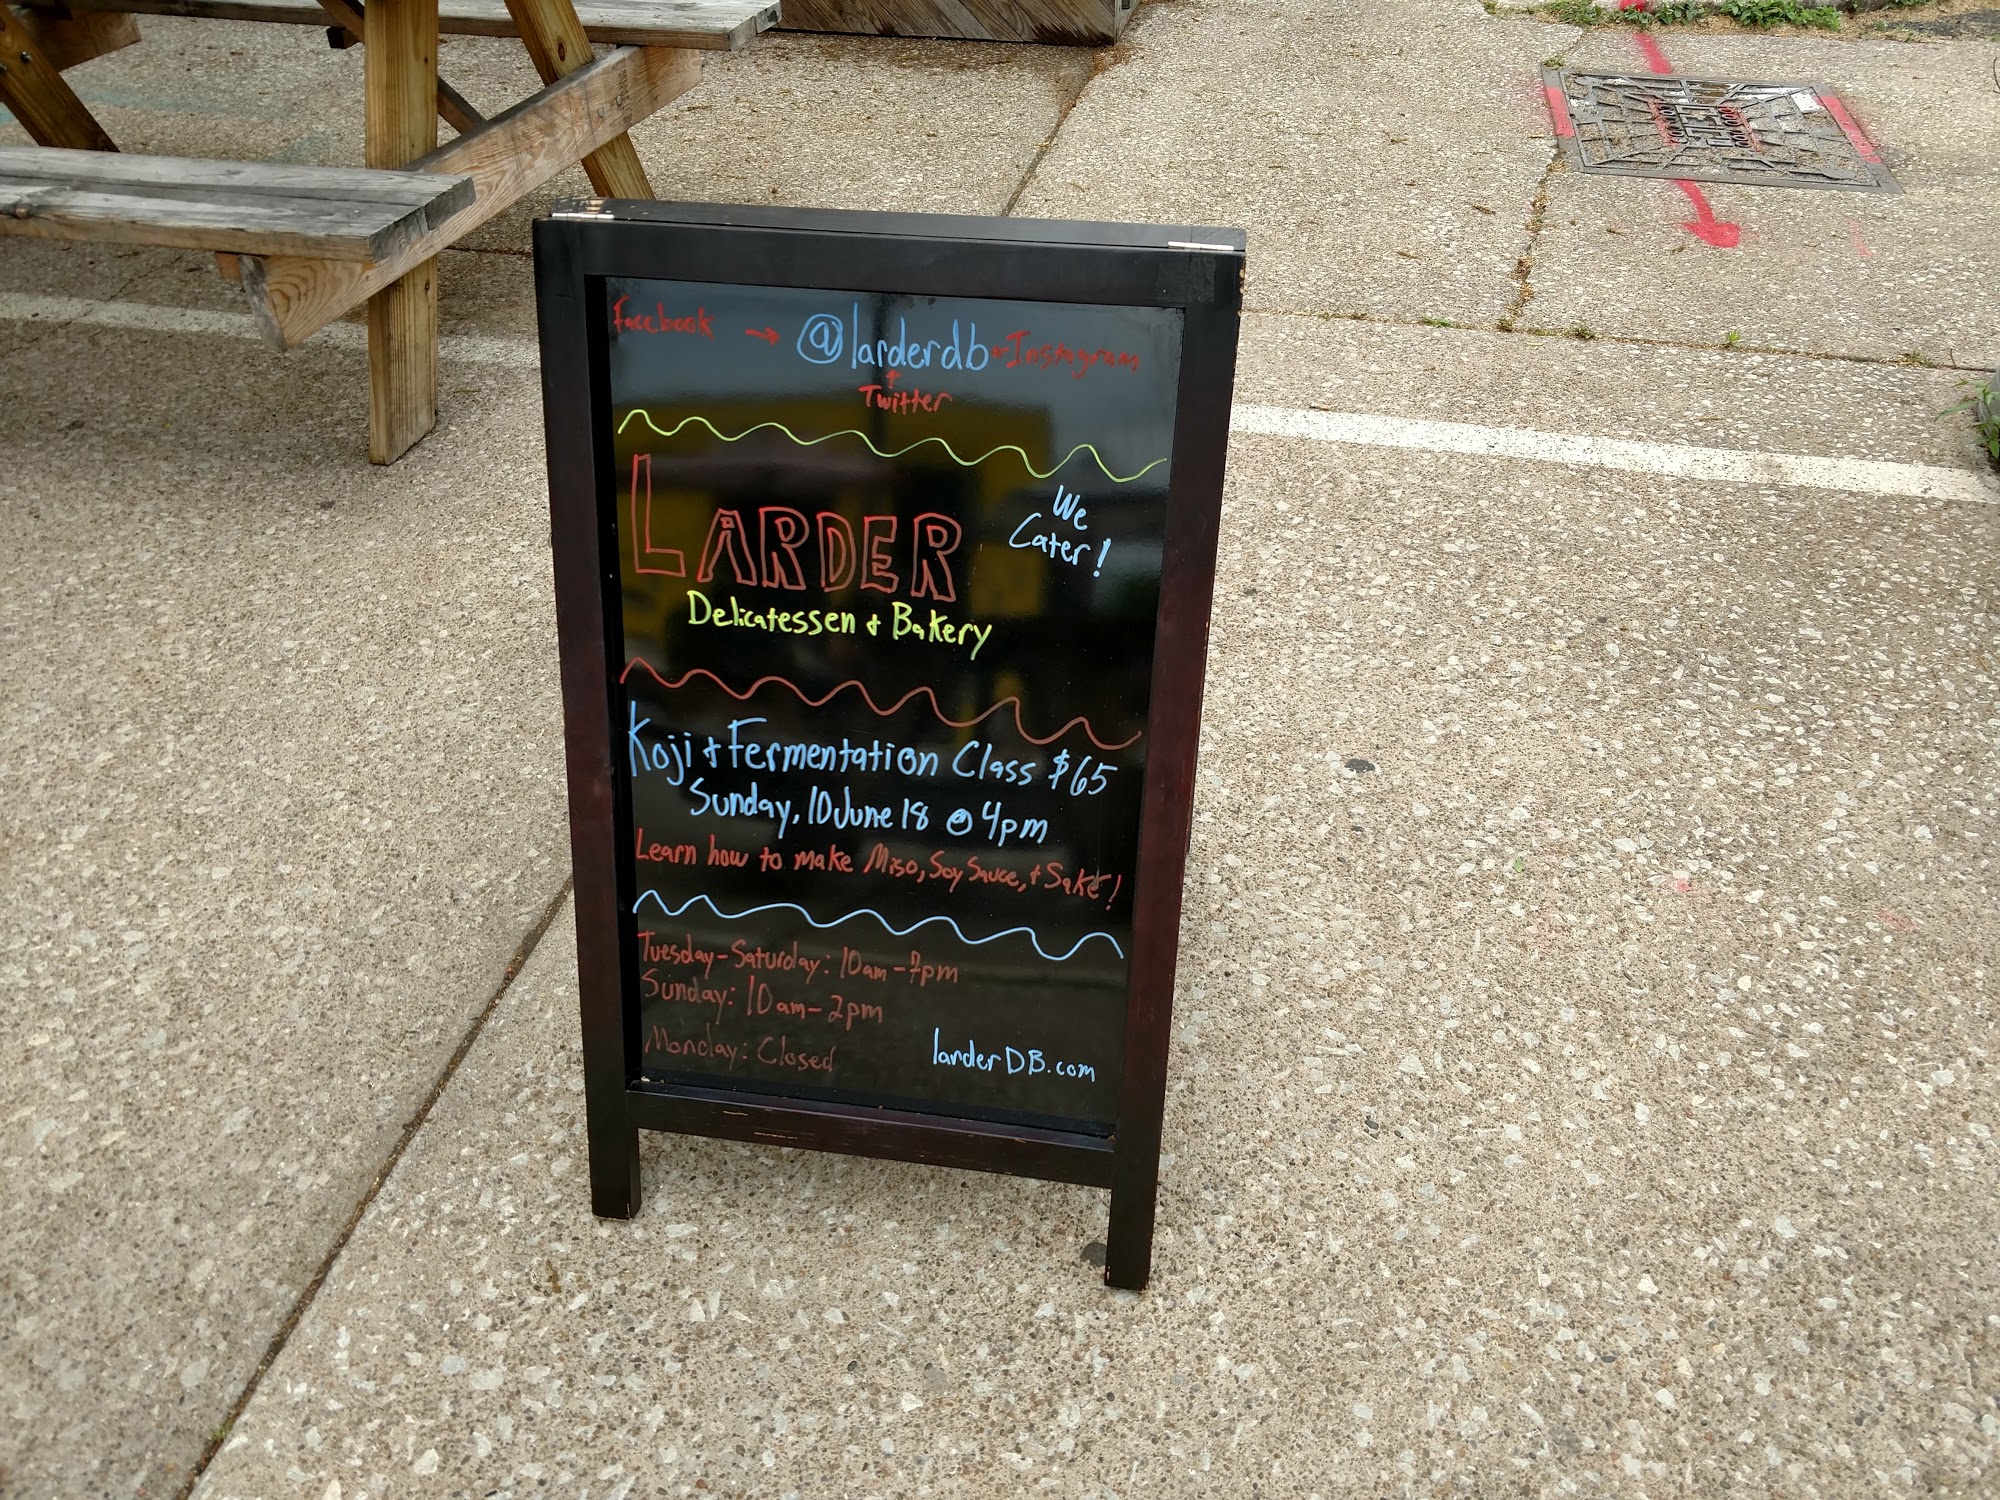 Facebook → @larderdb ← Instagram
↑
Twitter
LARDER
We
Cater!
Delicatessen & Bakery
Koji & Fermentation Class $65
Sunday, 10 June 18 @ 4pm
Learn how to make Miso, Soy Sauce, & Saké!
Tuesday-Saturday: 10am-7pm
Sunday: 10am-2pm
Monday: Closed
larderDB.com